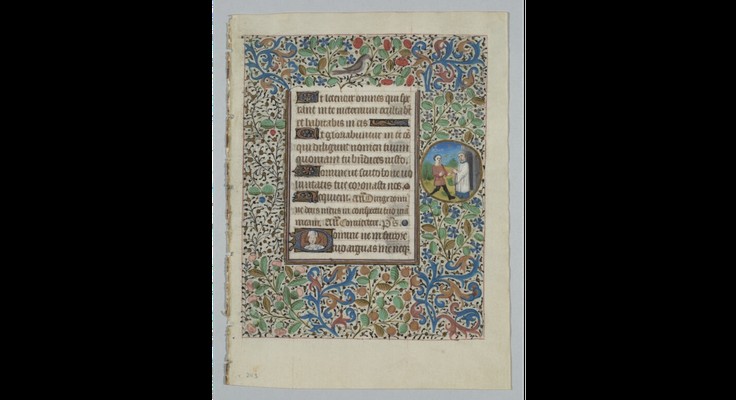 Et letentur omnes qui spe
rant in te in eternum exultabt
et habitabis in eis
Et gloriabuntur in te
qui diligunt nomen tuum
quoniam tu bndices iusto.
Domine ut scuto bone vo
luntatis tue coronasti nos.
Requiem. an Dirige domi
ne deus meus in conspectu tuo
meam. an Convertere. ps.
Domine ne in furore
tuo arguas me neq